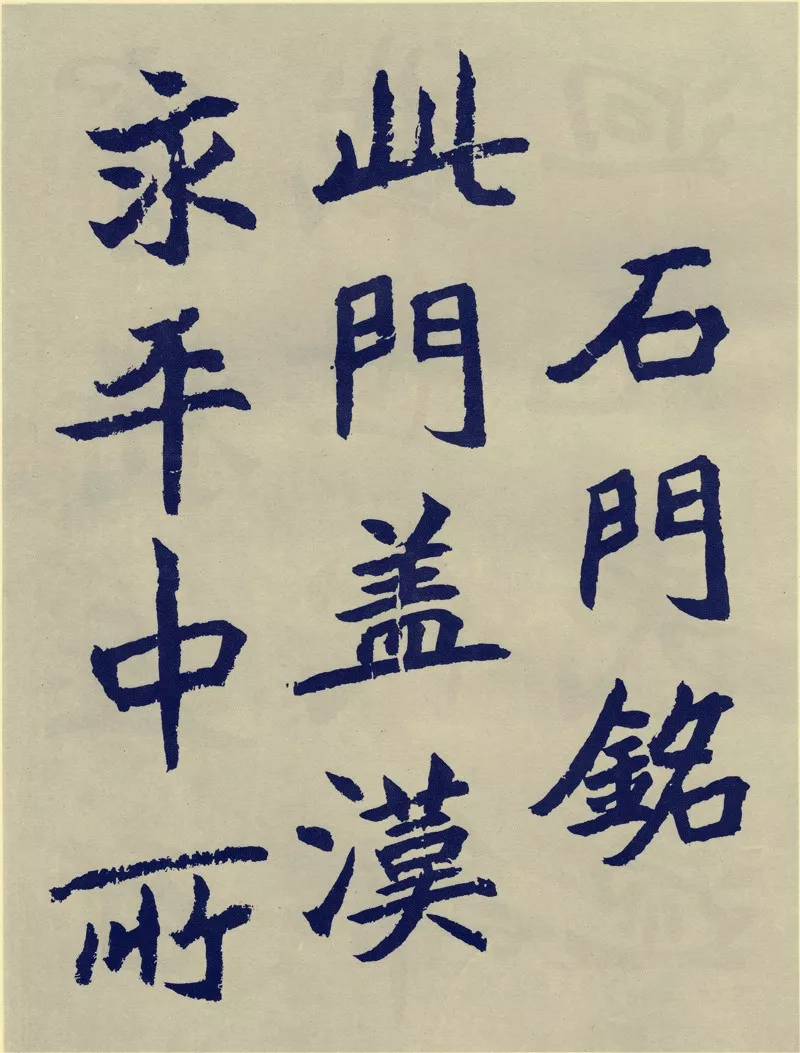 石門銘
此門盖漢
永平中所